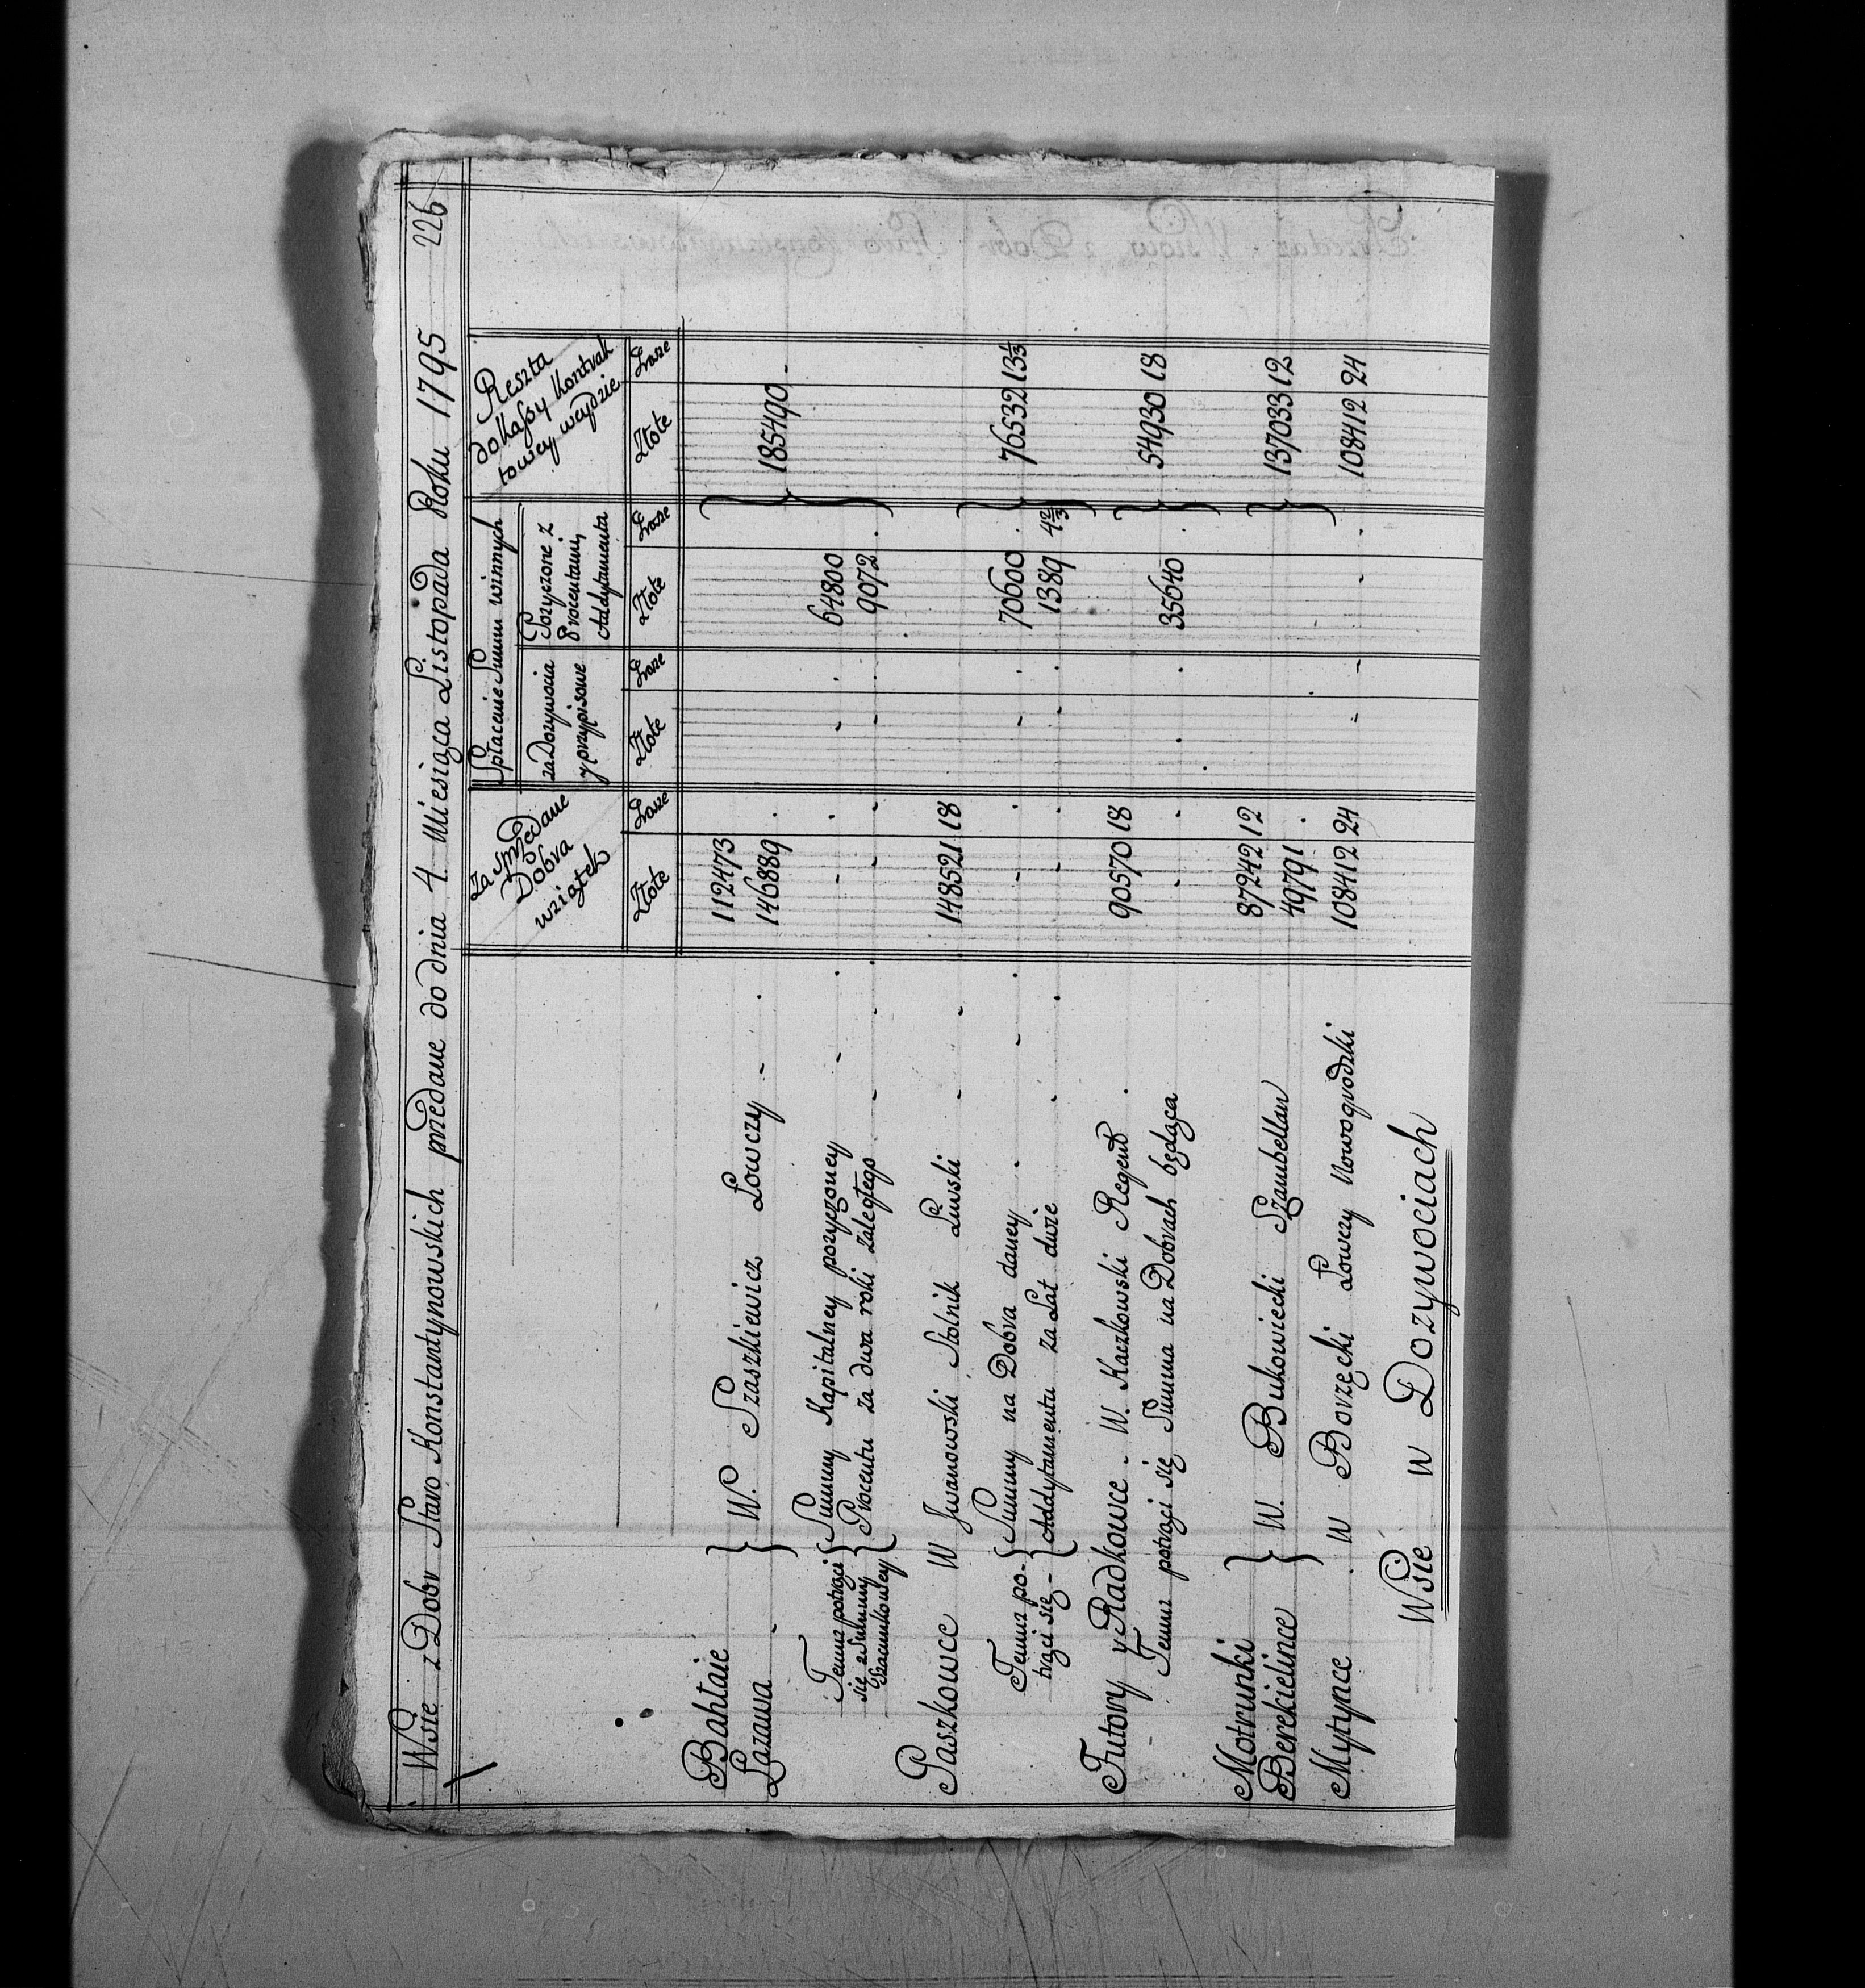 Wsie z Dobr Staro Konstantynowskich przedane do dnia 4. Miesiąca Listopada Roku 1795 226
Za przedane Dobra wziątek
Spłacenie Summ winnych
Reszta do Kassy Kontraktowey weydzie
za Dozywocia y przypisowe
Pozyczone z Procentami, Addytamenta
Złote Grosze Złote Grosze Złote Grosze Złote Grosze
Bahłaie 112473
Lazawa - } W. Szaszkiewicz Łowczy - . 146889 . 185490 -
Temuz potrąci się z Summy Szacunkowey
{ Summy Kapitalney pozyczoney - . - . - . 64800
{ Procentu za dwa roki zaległego - - . - - - . 9072 .
Paszkowce W Jwanowski Stolnik Liwski - - 148521 18
Temuz potrąci się -
{ Summy na Dobra daney . - . - . - . 70600 . 76532 13⅓
{ Addytamentu za Lat dwie - . - . . . 1389 4⅔
Futory y Radkowce - W. Kaczkowski Regent . 90570 18 54930 18
Temuz potrąci się Summa na Dobrach będąca - - . . 35640 .
Motrunki 87242 12
Berekielince } W. Bukowiecki Szambellan 49791 . 137033 12
Mytynce . W Borzęcki Łowczy Nowogrodzki 108412 24 - - - . 108412 24
Wsie w Dozywociach